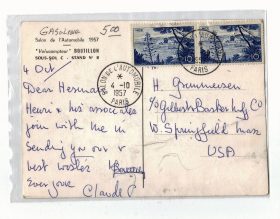 GASOLINE 500
Salon de l'Automobile 1957
"Volucompteur" BOUTILLON
SOUS-SOL C - STAND Nº 8
SALON DE L'AUTOMOBILE
4-10
1957
PARIS
4 Oct
Dear Herman
Henri & his associates
join with me in
sending you our
best wishes
Everyone
Claude
H. Grenmeisen
c/o Gilbert & Barker Mfg Co
W. Springfield Mass
USA